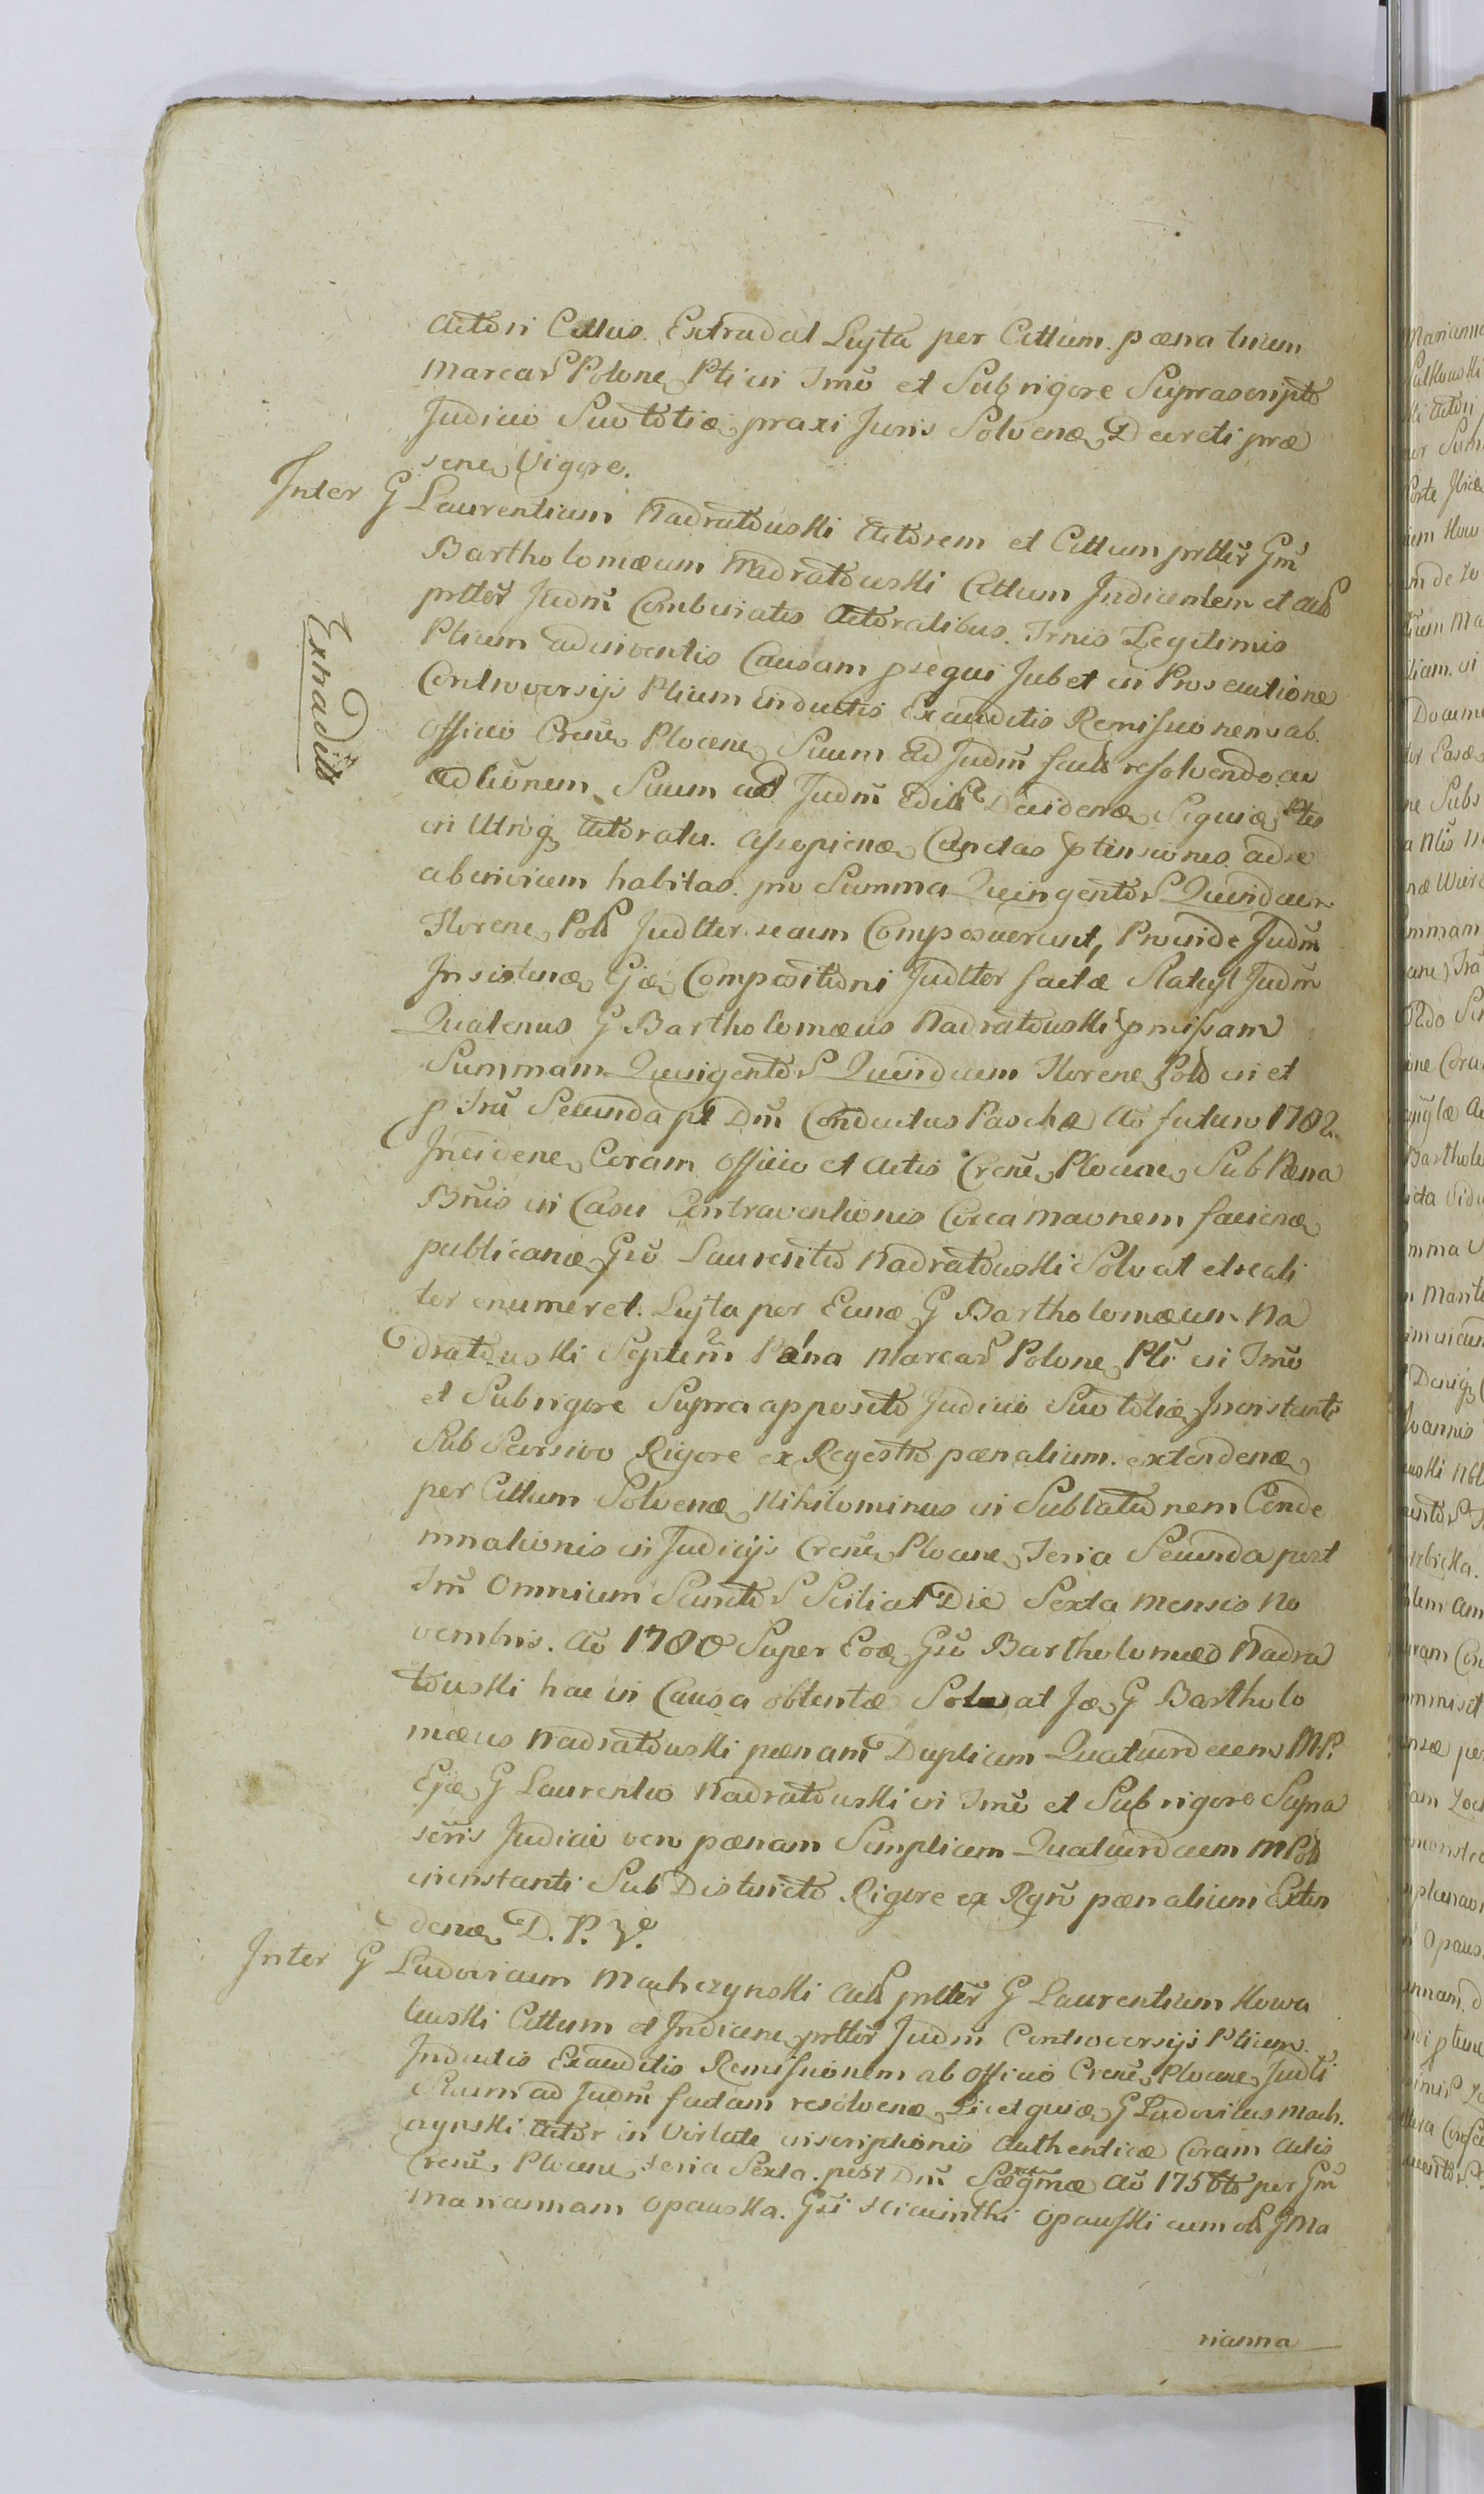 Actori Cittus. Extradat Lujta per Cittum. pæna trium
Marcar Polone, Pti in Tmũ et Sub rigore Suprascripto
Judicio Suo totiæ, praxi Juris Solvenæ, Decreti præ
sene, Vigore.
Inter G Laurentium Nadratowski Actorem et Cittum prttẽr Gm̃
Bartholomæum Nadratowski Cittum Indicentem et Act
prttẽr Judm̃ Combinatis Actoratibus. Trnis Legitimis
Ptium advenientis Causam p̱sequi Jubet in Prosecutione
Extradit
Controversijs Ptium inductis Exauditis Remissionem ab.
Officio Crenẽ, Plocene, Suum ad Judm̃ factã resolvendo ac
Actionem Suum ad Judm̃ Decidenæ, Sequiæ, Ptes
in Utroq Actoratu. Assopienæ, Cunctas p̱tensiones ad se
ab invicem habitas. pro Summa Quingentor Quindecem
Florene, Poll Judtter secum Composuerunt, Proinde Judm̃
Insistenæ, Ejæ, Compositioni Judtter factæ Statuit Judm̃
Quatenus G Bartholomæus Nadratowski p̱missam
Summam Quingentor Quindecem Florene, Poll in et
p Tru Secunda pt Dm̃ Conductus Paschæ Ao futuro 1782
Incidene, Coram Officio et Actis Crenẽ, Plocene, Sub Pæna
Bnis in Casu Contraventionis Circa Maonem facienæ
publicanæ, Gso Laurentio Nadratowski Solvat et reali
ter enumeret. Lujta per Eunæ, G Bartholomæum Na
dratowski Septem̃ Pæna Marcar Polone, Pti in Tmũ
et Sub rigore Supra apposito Judicio Suo totiæ, In instanti
Sub Scursivo Rigore ex Regestro pænalium. extendenæ,
per Cittum Solvenæ, Nihilominus in Sublationem Conde
mnationis in Judicijs Crenẽ, Plocene, Feria Secunda post
Fm̃ Omnium Sanctor Scilicet Die Sexta Mensis No
vembris. Ao 1780 Super Eoæ, Gso Bartholomæo Nadra
towski hac in Causa obtentæ Solvat Jæ, G Bartholo
mæus Nadratowski pænam Duplicem Quatuordecem MP.
Ejæ, G Laurentio Nadratowski in Tmũ et Sub rigore Supra
scris Judicio vero pænam Simplicem Quatuordecem MPoll
in instanti Sub Districto Rigore ex Rgro pænalium Exten
denæ, D. P. V.
Inter G Ludovicum Machczynski Act prttẽr G Laurentium Kowa
lewski Cittum et Indicene, prttẽr Judm̃ Controversijs Ptium.
Inductis Exauditis Remissionem ab Officio Crenẽ, Plocene, Judti
Suum ad Judm̃ factam resolvenæ, Licet quiæ, G Ludovicus Mach.
czynski Actor in Virtute inscriptionis Authenticæ Coram Actis
Crenẽ, Plocene, Feria Sexta. post Dm̃ per Gm̃
Mariannam Opawska. Gsi Hiacinthi Opawski cum olt GMa
rianna